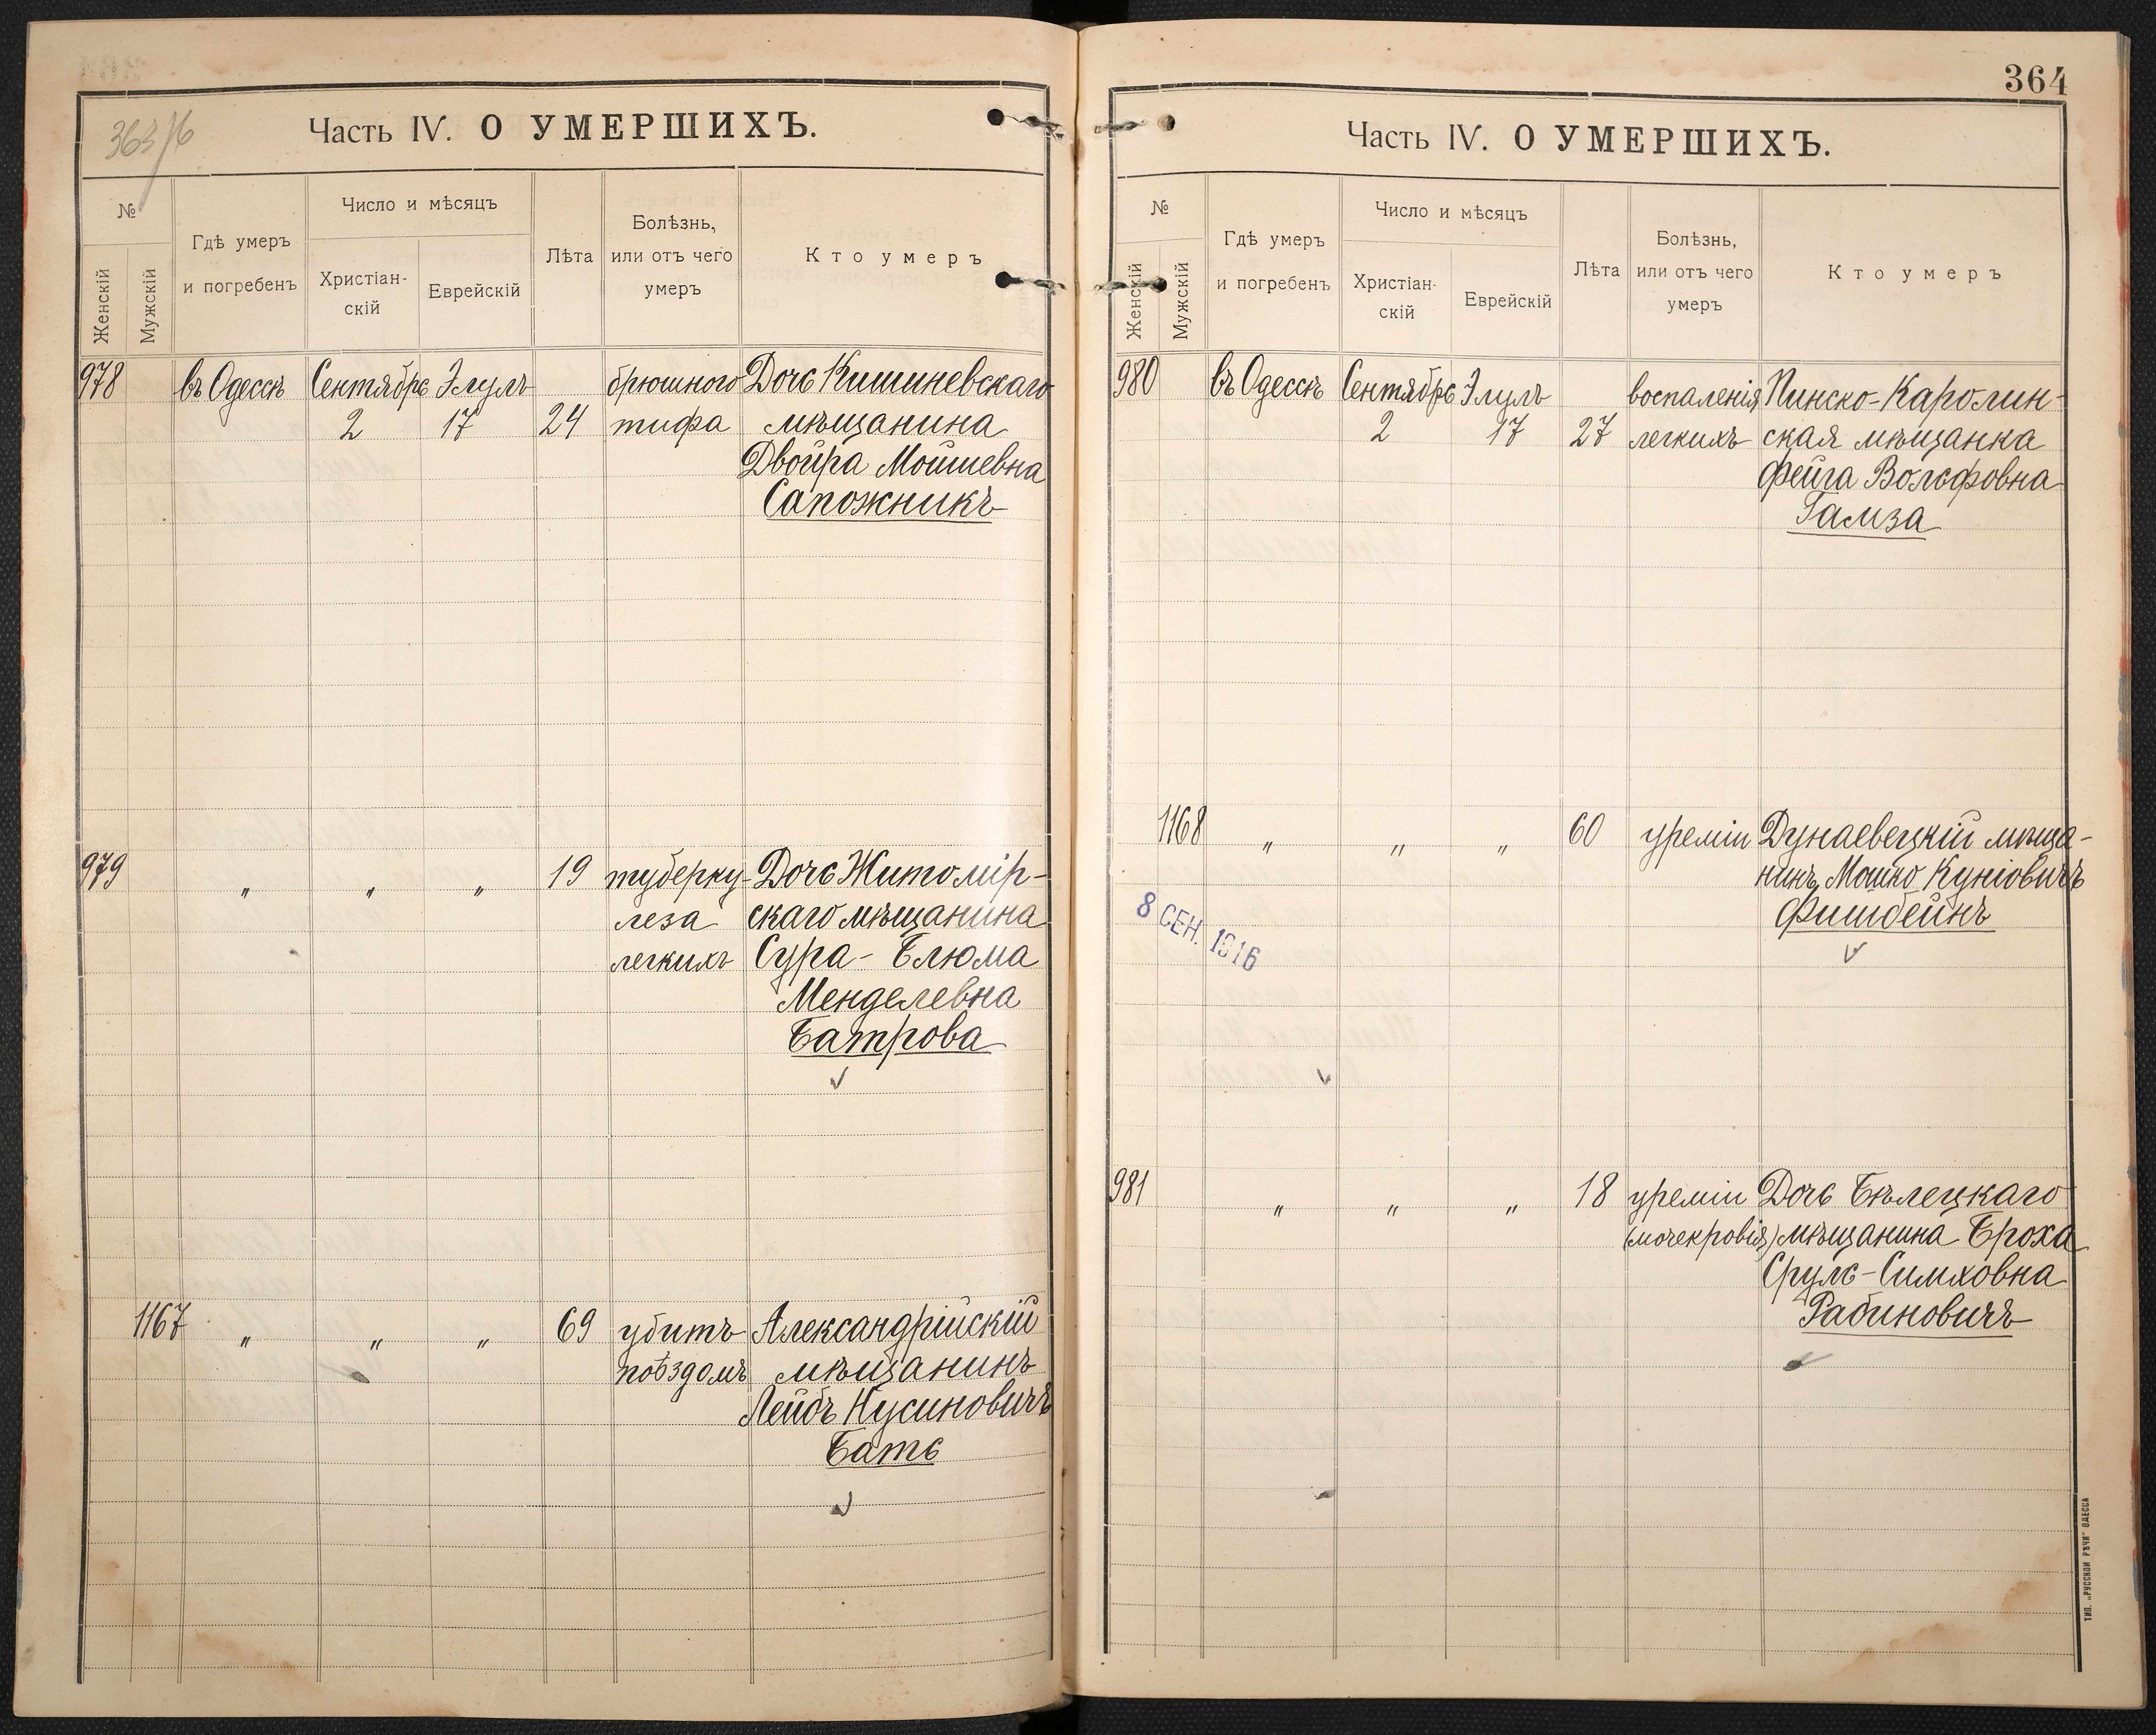 363/6
Часть IV. О УМЕРШИХЪ.
№
Женскій
Мужскій
Гдѣ умеръ
и погребенъ
Число и мѣсяцъ
Христіан-
скій
Еврейскій
Лѣта
Болѣзнь,
или отъ чего
умеръ
Кто умеръ
978 въ Одессѣ Сентябрь Элулъ брюшного Дочь Кишиневскаго
2 17 24 тифа мѣщанина
Двойра Мошевна
Сапожникъ
979 " " " 19 туберку- Дочь Житомір-
леза скаго мѣщанина
легкихъ Сура-Блюма
Менделевна
Батрова
1167 " " " 69 убитъ Александрійскій
поѣздомъ мѣщанинъ
Лейбъ Нусиновичъ
Бать
364
Часть IV. О УМЕРШИХЪ.
№
Женскій
Мужскій
Гдѣ умеръ
и погребенъ
Число и мѣсяцъ
Христіан-
скій
Еврейскій
Лѣта
Болѣзнь,
или отъ чего
умеръ
Кто умеръ
980 въ Одессѣ Сентябрь Элулъ воспаленія Пинско-Каролин-
2 17 27 легкихъ ская мѣщанка
Фейга Вольфовна
Гамза
1168 " " " 60 уреміи Дунаевецкій мѣща-
нинъ Мошко Куніовичъ
Фишбейнъ
8 СЕН. 1916
981 " " " 18 уреміи Дочь Бѣлецкаго
(мочекровія) мѣщанина Броха
Сруль-Симховна
Рабиновичъ
ТИП. „РУССКОЙ РѢЧИ" ОДЕССА